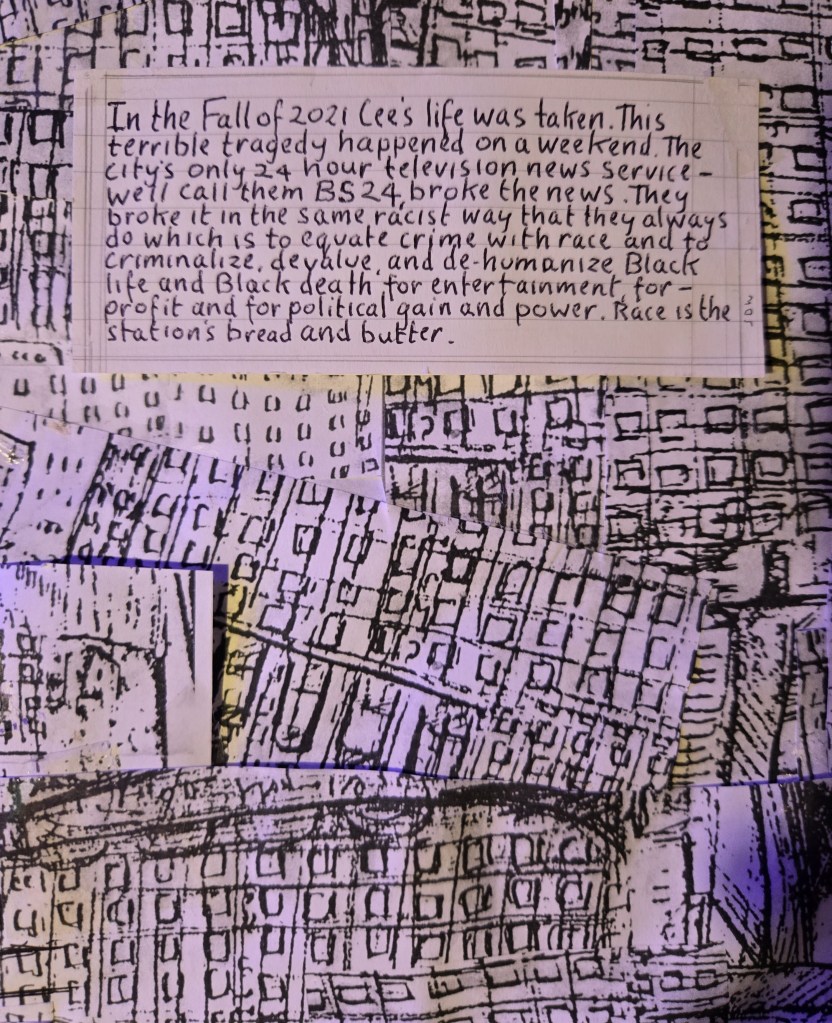 In the Fall of 2021 Cee's life was taken. This
terrible tragedy happened on a weekend. The
city's only 24 hour television news service -
we'll call them BS24, broke the news. They
broke it in the same racist way that they always
do which is to equate crime with race and to
criminalize, devalue, and de-humanize Black
life and Black death for entertainment, for -
profit and for political gain and power. Race is the
station's bread and butter.